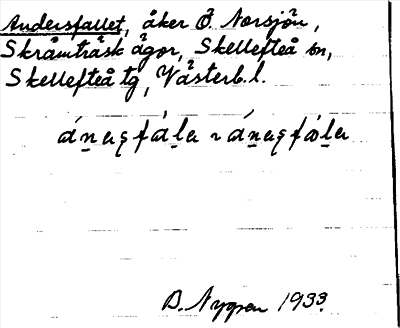 Andersfallet, åker Ö. Norsjön,
Skråmträsk ägor, Skellefteå sn,
Skellefteå tg, Västerb. l.
B. Nygren 1933.